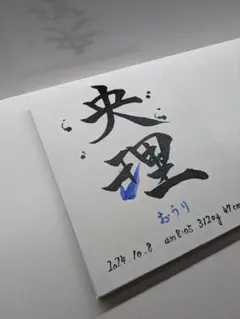 央理
おうり
2024.10.8 am8:05 3120g 47cm